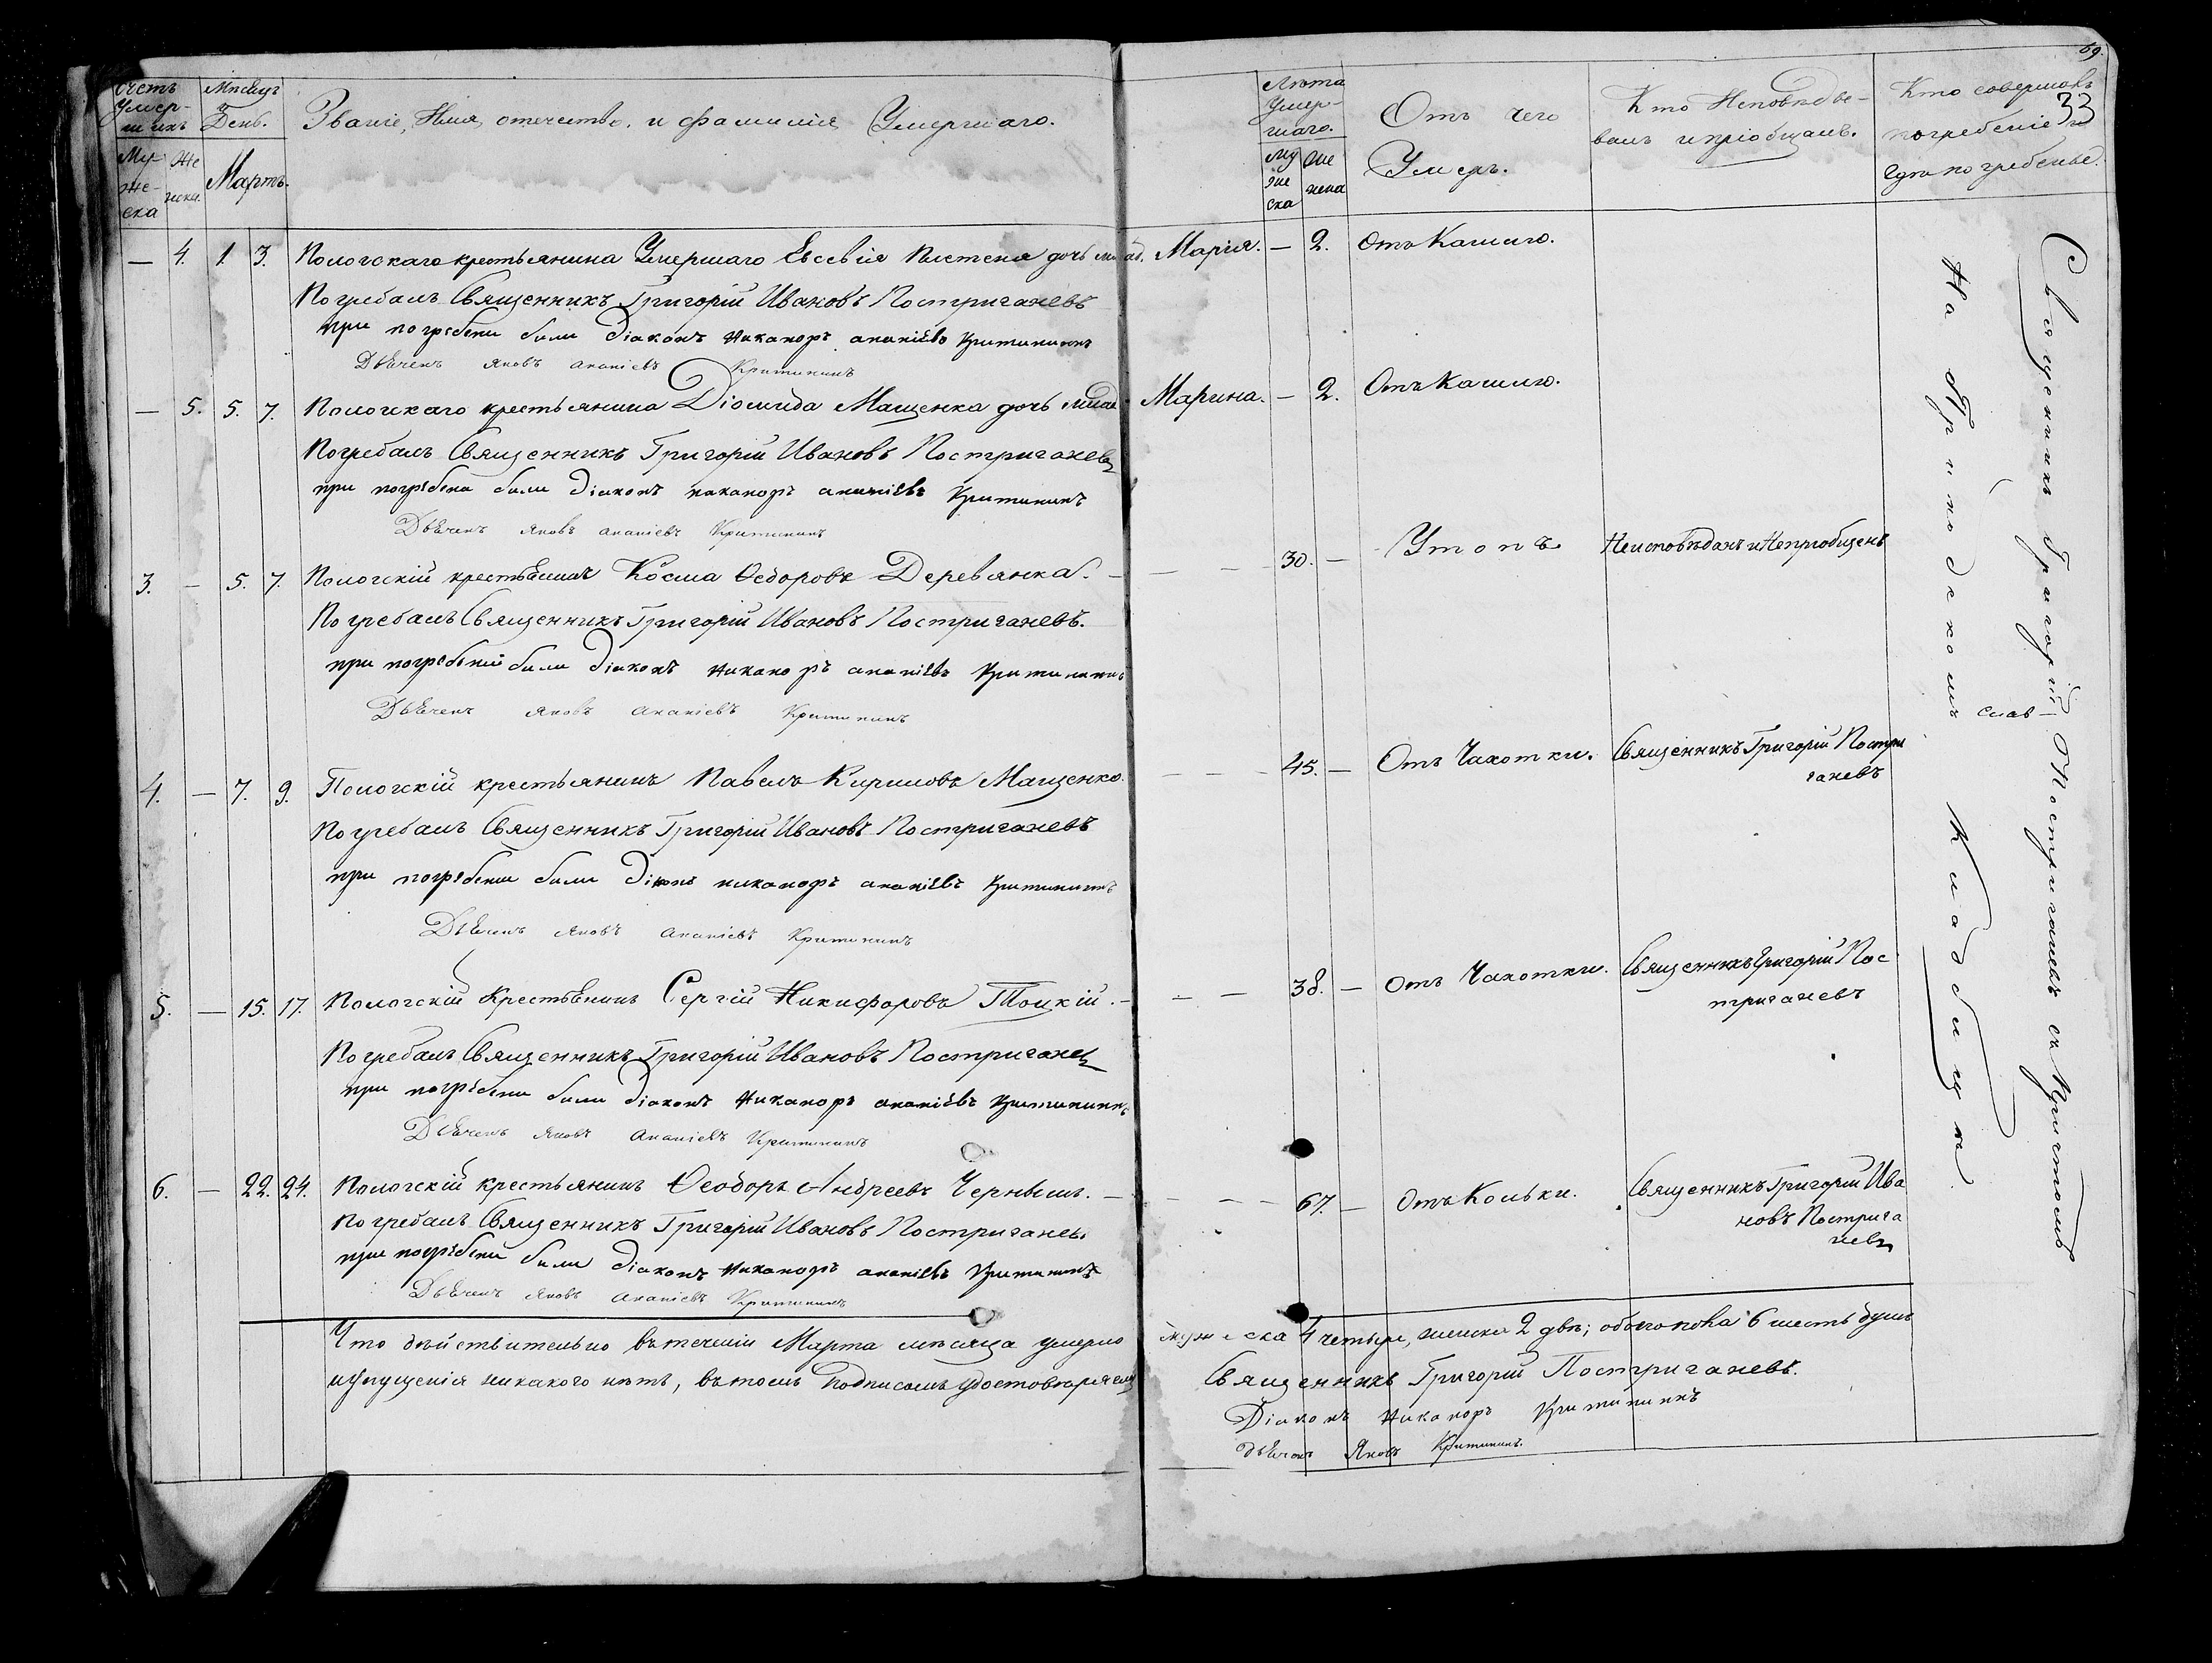 69.
33
Счетъ умер-шихъ
Мѣсяцъ и День.
Званіе, Имя, отечество, и фамилія Умершаго.
Лѣта Умер-шаго.
Отъ чего Умеръ.
Кто Исповѣдо-валъ и пріобщалъ.
Кто совершалъ погребеніе и гдѣ погребены.
Му-же-ска
Же-нска
Мартъ.
Му-же-ска
Же-нска
— 4. 1. 3. Пологскаго крестьянина Умершаго Евсевія Плетеня дочь млад. Марія. — 2. Отъ Кашлю.
Погребалъ Священникъ Григорій Ивановъ Постригачевъ
при погребени были Діаконъ Никаноръ ананіевъ Критининъ
Дьячекъ Яковъ Ананіевъ Критининъ
— 5. 5. 7. Пологскаго крестьянина Діомида Мащенка дочь млад. Марина. — 2. Отъ Кашлю.
Погребалъ Священникъ Григорій Ивановъ Постригачевъ
при погребени были Діаконъ никаноръ ананіевъ Критининъ
Дьячекъ Яковъ ананіевъ Критининъ
3. — 5. 7. Пологскій крестьянинъ Косма Ѳедоровъ Деревянка. — — — 30. — Утопъ Неисповѣданъ и Непріобщенъ
Погребалъ Священникъ Григорій Ивановъ Постригачевъ.
при погребеніи были Діаконъ Никаноръ ананіевъ Критининъ
Дьячекъ Яковъ Ананіевъ Критининъ
4. — 7. 9. Пологскій крестьянинъ Павелъ Кириловъ Мащенко. — — — 45. — Отъ Чахотки. Священникъ Григорій Постри
гачевъ
Погребалъ Священникъ Григорій Ивановъ Постригачевъ
при погребени были Діконъ никаноръ ананіевъ Критининъ
Дьячекъ Яковъ Ананіевъ Критининъ
5. — 15. 17. Пологскій Крестьянинъ Сергій Никифоровъ Тоцкій. — — — 38. — Отъ Чахотки. Священникъ Григорій Пос
тригачевъ
Погребалъ Священникъ Григорій Ивановъ Постригачевъ
при погребени были Діаконъ Никаноръ ананіевъ Критининъ
Дьячекъ Яковъ Ананіевъ Критининъ
6. — 22. 24. Пологскій крестьянинъ Ѳеодоръ Андреевъ Чернышъ. — — — — 67. — Отъ Кольки. Священникъ Григорій Ива
новъ Пострига
чевъ
Погребалъ Священникъ Григорій Ивановъ Постригачевъ
при погребени были Діаконъ Никаноръ ананіевъ Критининъ
Дьячекъ Яковъ Ананіевъ Критининъ
Священникъ Григорій Постригачевъ съ Причтомъ
На Приходскомъ Кладбищѣ
Что дѣйствительно въ теченіи Марта мѣсяца умерло мужеска 4 четыре, женска 2 двѣ; обоего пола 6 шесть душъ
и упущенія никакого нѣтъ, въ томъ Подписомъ удостовѣряемъ
Священникъ Григорій Постригачевъ.
Діаконъ Никаноръ Критининъ
дьячекъ Яковъ Критининъ.